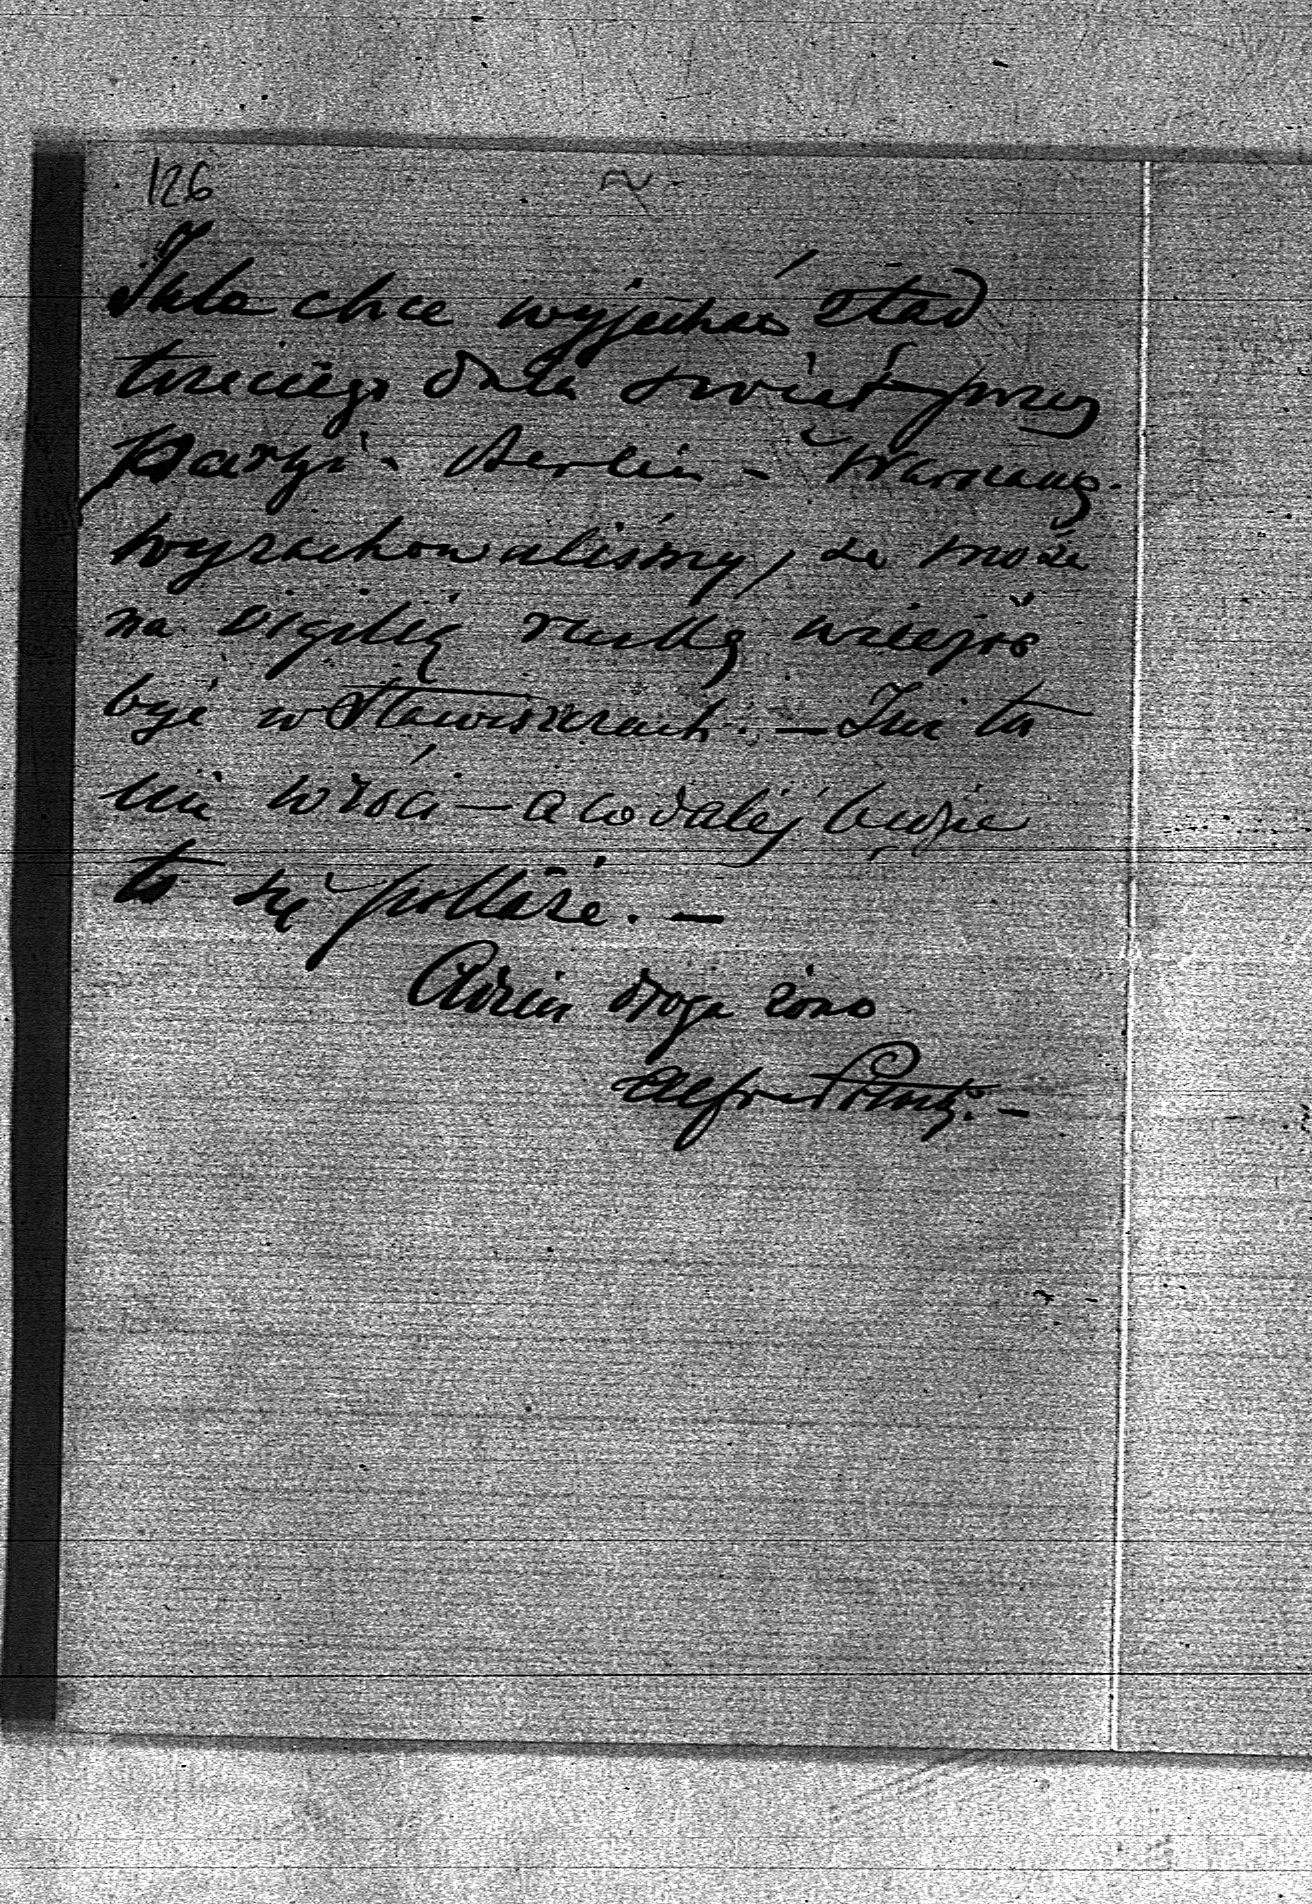 126
Jula chce wyjechać ztad
trzeciego dnia świąt przez
Paryż - Berlin - Warszawę.
Wyrachowaliśmy, że może
na vigilię ruską
być w Stawiszczach. — Już tu
nie wróci — a co daléj będzie
to się pokaże. —
Adziu droga żono
Alfred